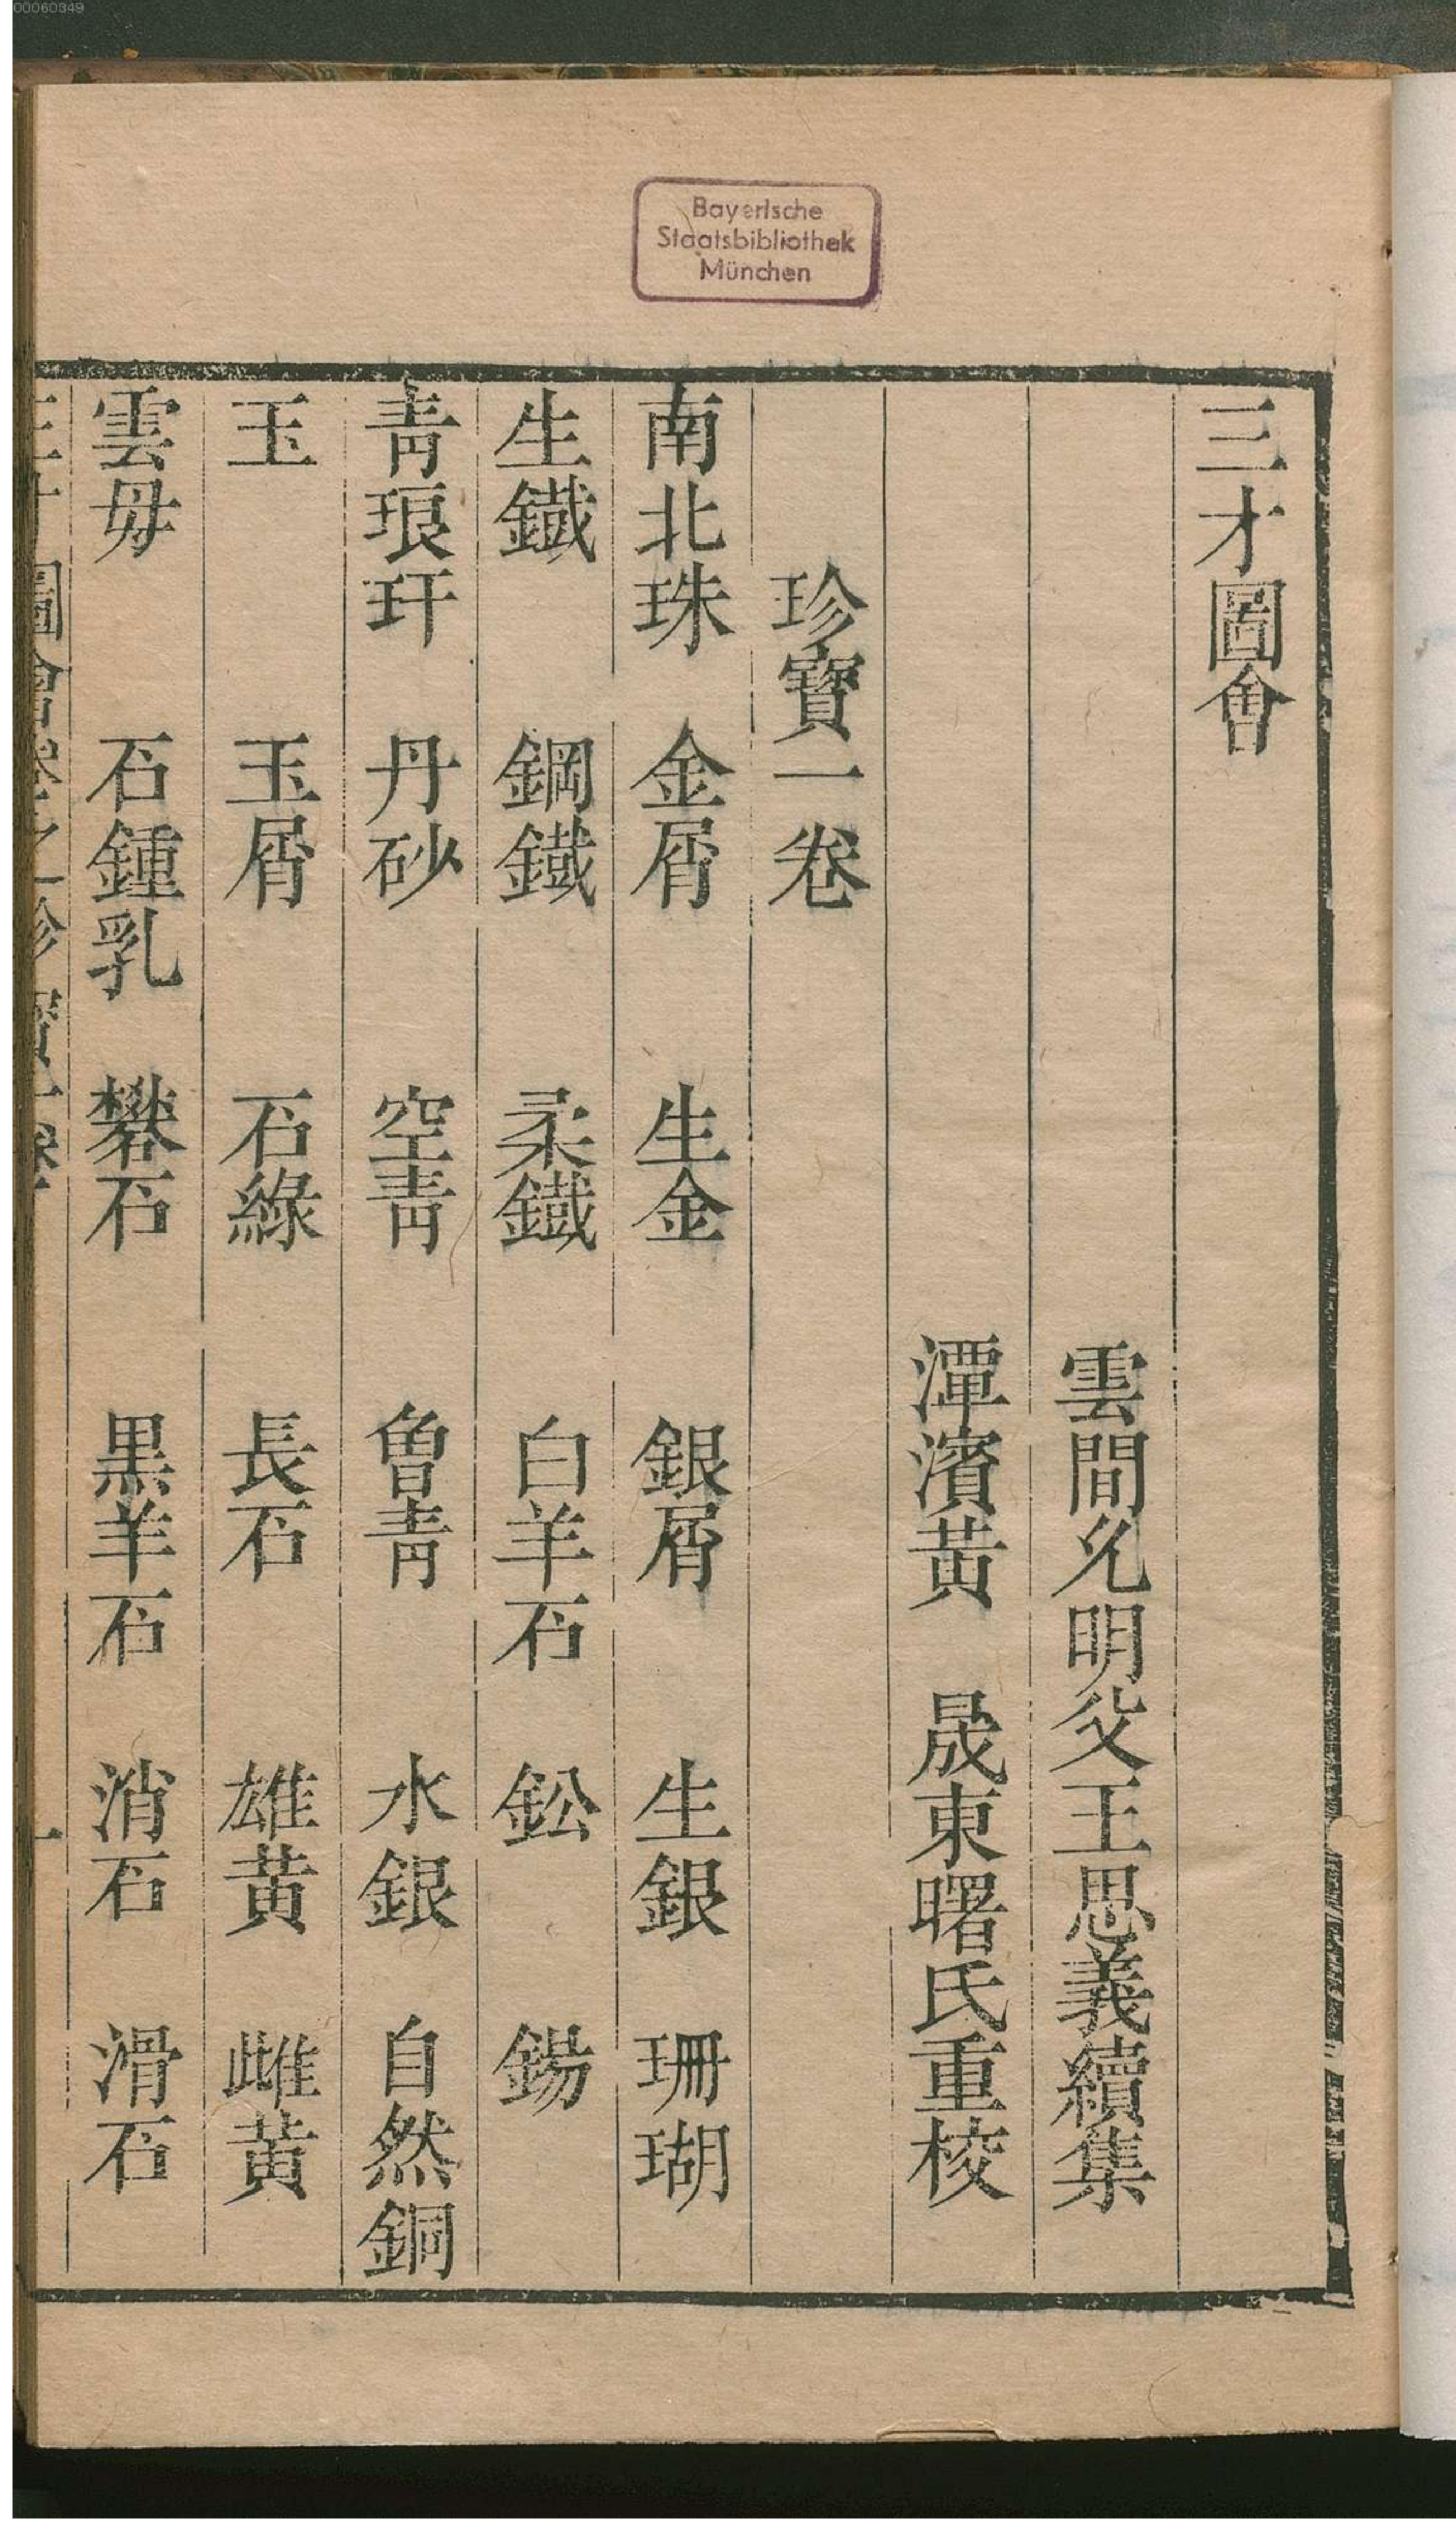 00060349
Bayerische
Staatsbibliothek
München
三才圖會
雲間允明父王思義續集
潭濱黃　晟東曙氏重校
珍寶一卷
南北珠　金屑　生金　銀屑　生銀　珊瑚
生鐵　鋼鐵　柔鐵　白羊石　鈆　鍚
靑琅玕　丹砂　空靑　魯靑　水銀　自然銅
玉　玉屑　石綠　長石　雄黃　雌黃
雲母　石鍾乳　礬石　黒羊石　消石　滑石